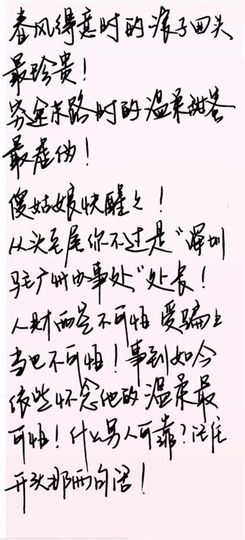 春风得意时的浪子回头
最珍贵！
穷途末路时的温柔甜窖
最虚伪！
傻姑娘快醒之！
从头至尾你不过是“深圳
驻广州办事处”处长！
人财两空不可怕 受骗上
当也不可怕！事到如今
依然怀念他的温柔最
可怕！什么男人可靠？记住
开头那两句话！